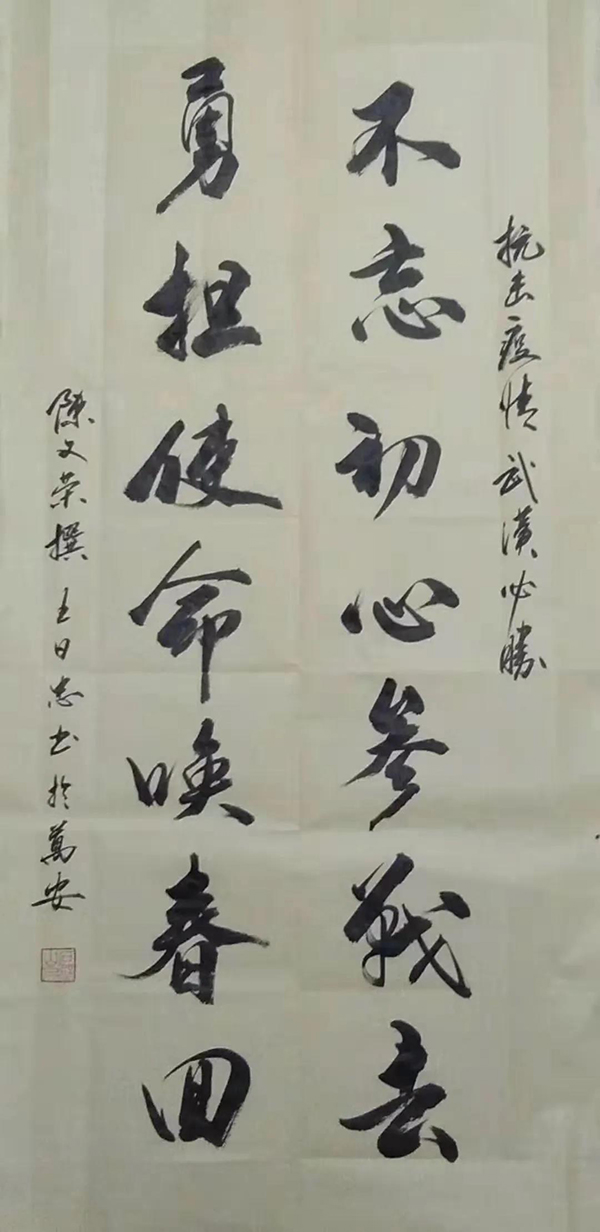 抗击疫情武漢必勝
不忘初心参戰去
勇担使命唤春回
陳文荣撰王日忠书於萬安